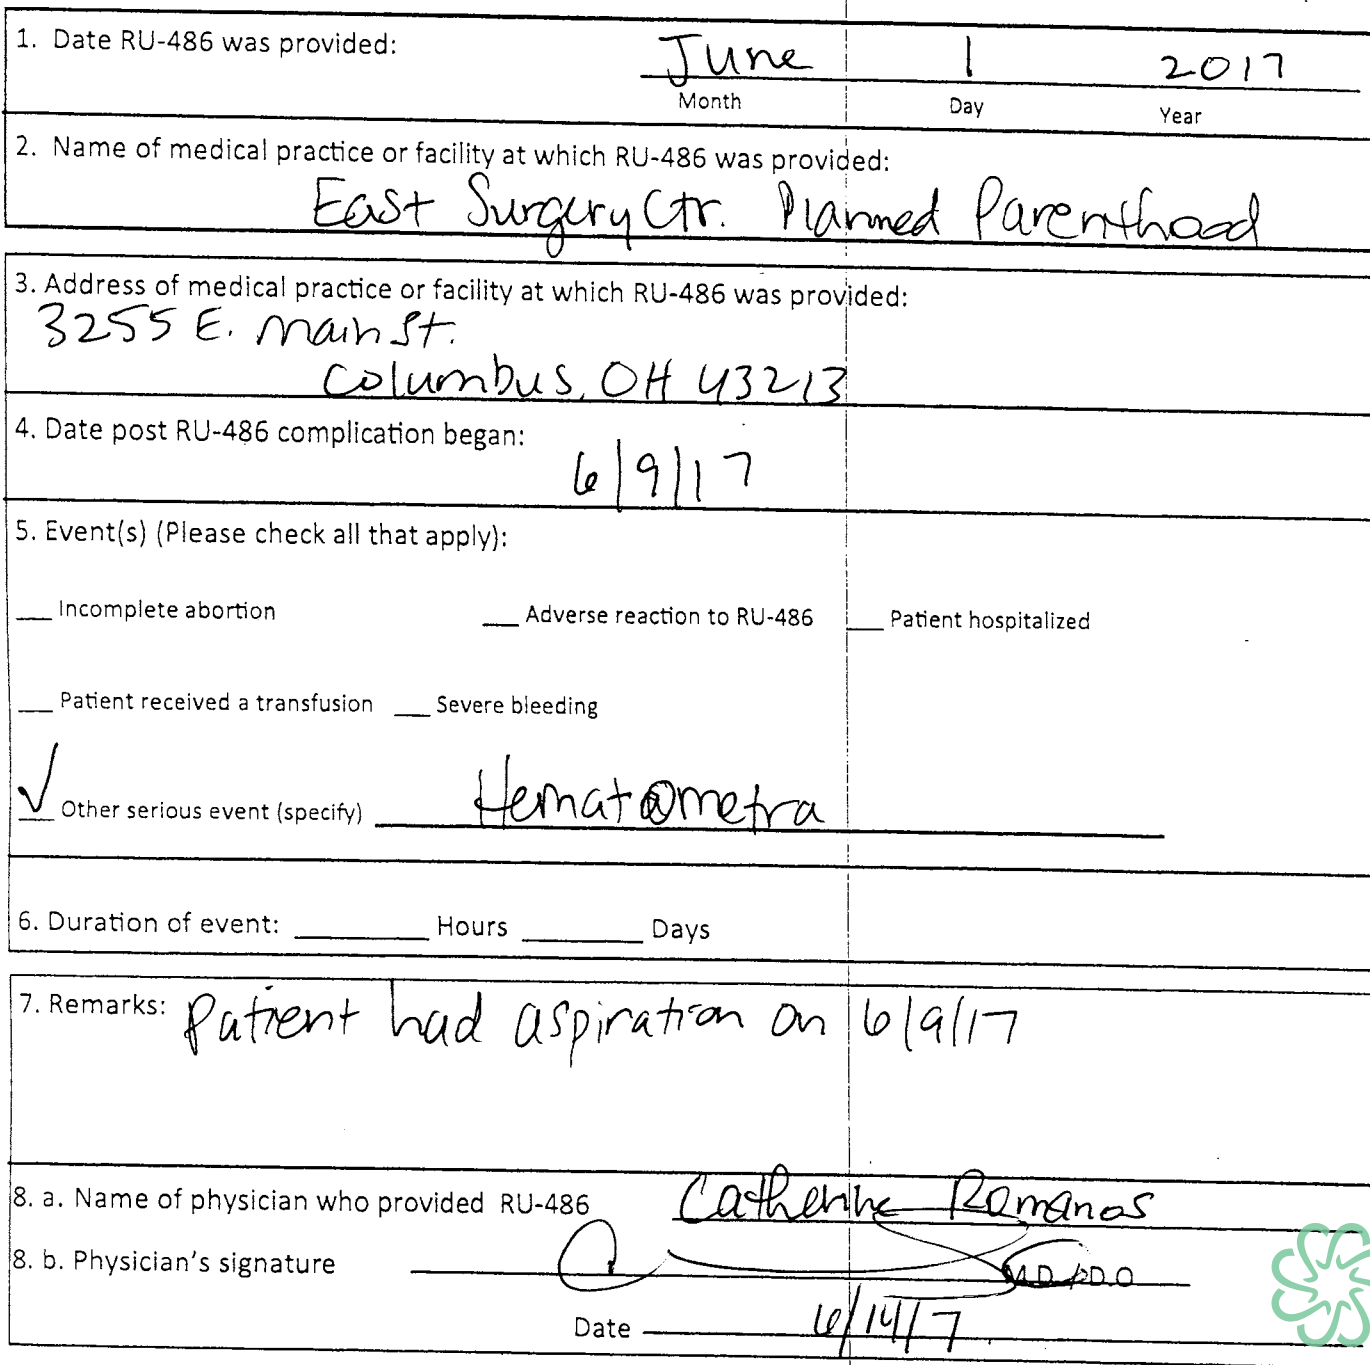 1. Date RU-486 was provided: June 1 2017
Month Day Year
2. Name of medical practice or facility at which RU-486 was provided:
East Surgery Ctr. Planned Parenthood
3. Address of medical practice or facility at which RU-486 was provided:
3255 E. Main St.
Columbus, OH 43213
4. Date post RU-486 complication began:
6/9/17
5. Event(s) (Please check all that apply):
__ Incomplete abortion __ Adverse reaction to RU-486 __ Patient hospitalized
__ Patient received a transfusion __ Severe bleeding
✓ Other serious event (specify) Hematometra
6. Duration of event: ______ Hours ______ Days
7. Remarks: Patient had aspiration on 6/9/17
8. a. Name of physician who provided RU-486 Catherine Romanos
8. b. Physician's signature M.D./D.O
Date 6/14/17